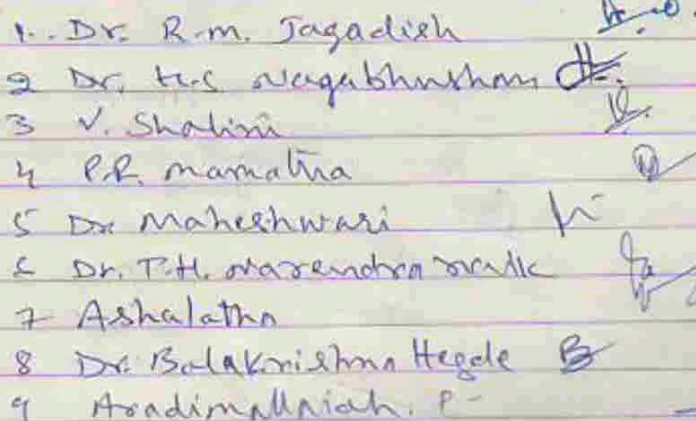 1. Dr. R.m. Jagadish
2 Dr. H.S Nagabhushan
3 V. Shalini
4 P.R. mamatha
5 Dr Maheshwari
6 Dr. T.H. Narendra naik
7 Ashalatha
8 Dr. Balakrishna Hegde
9 Aradimallaiah. P